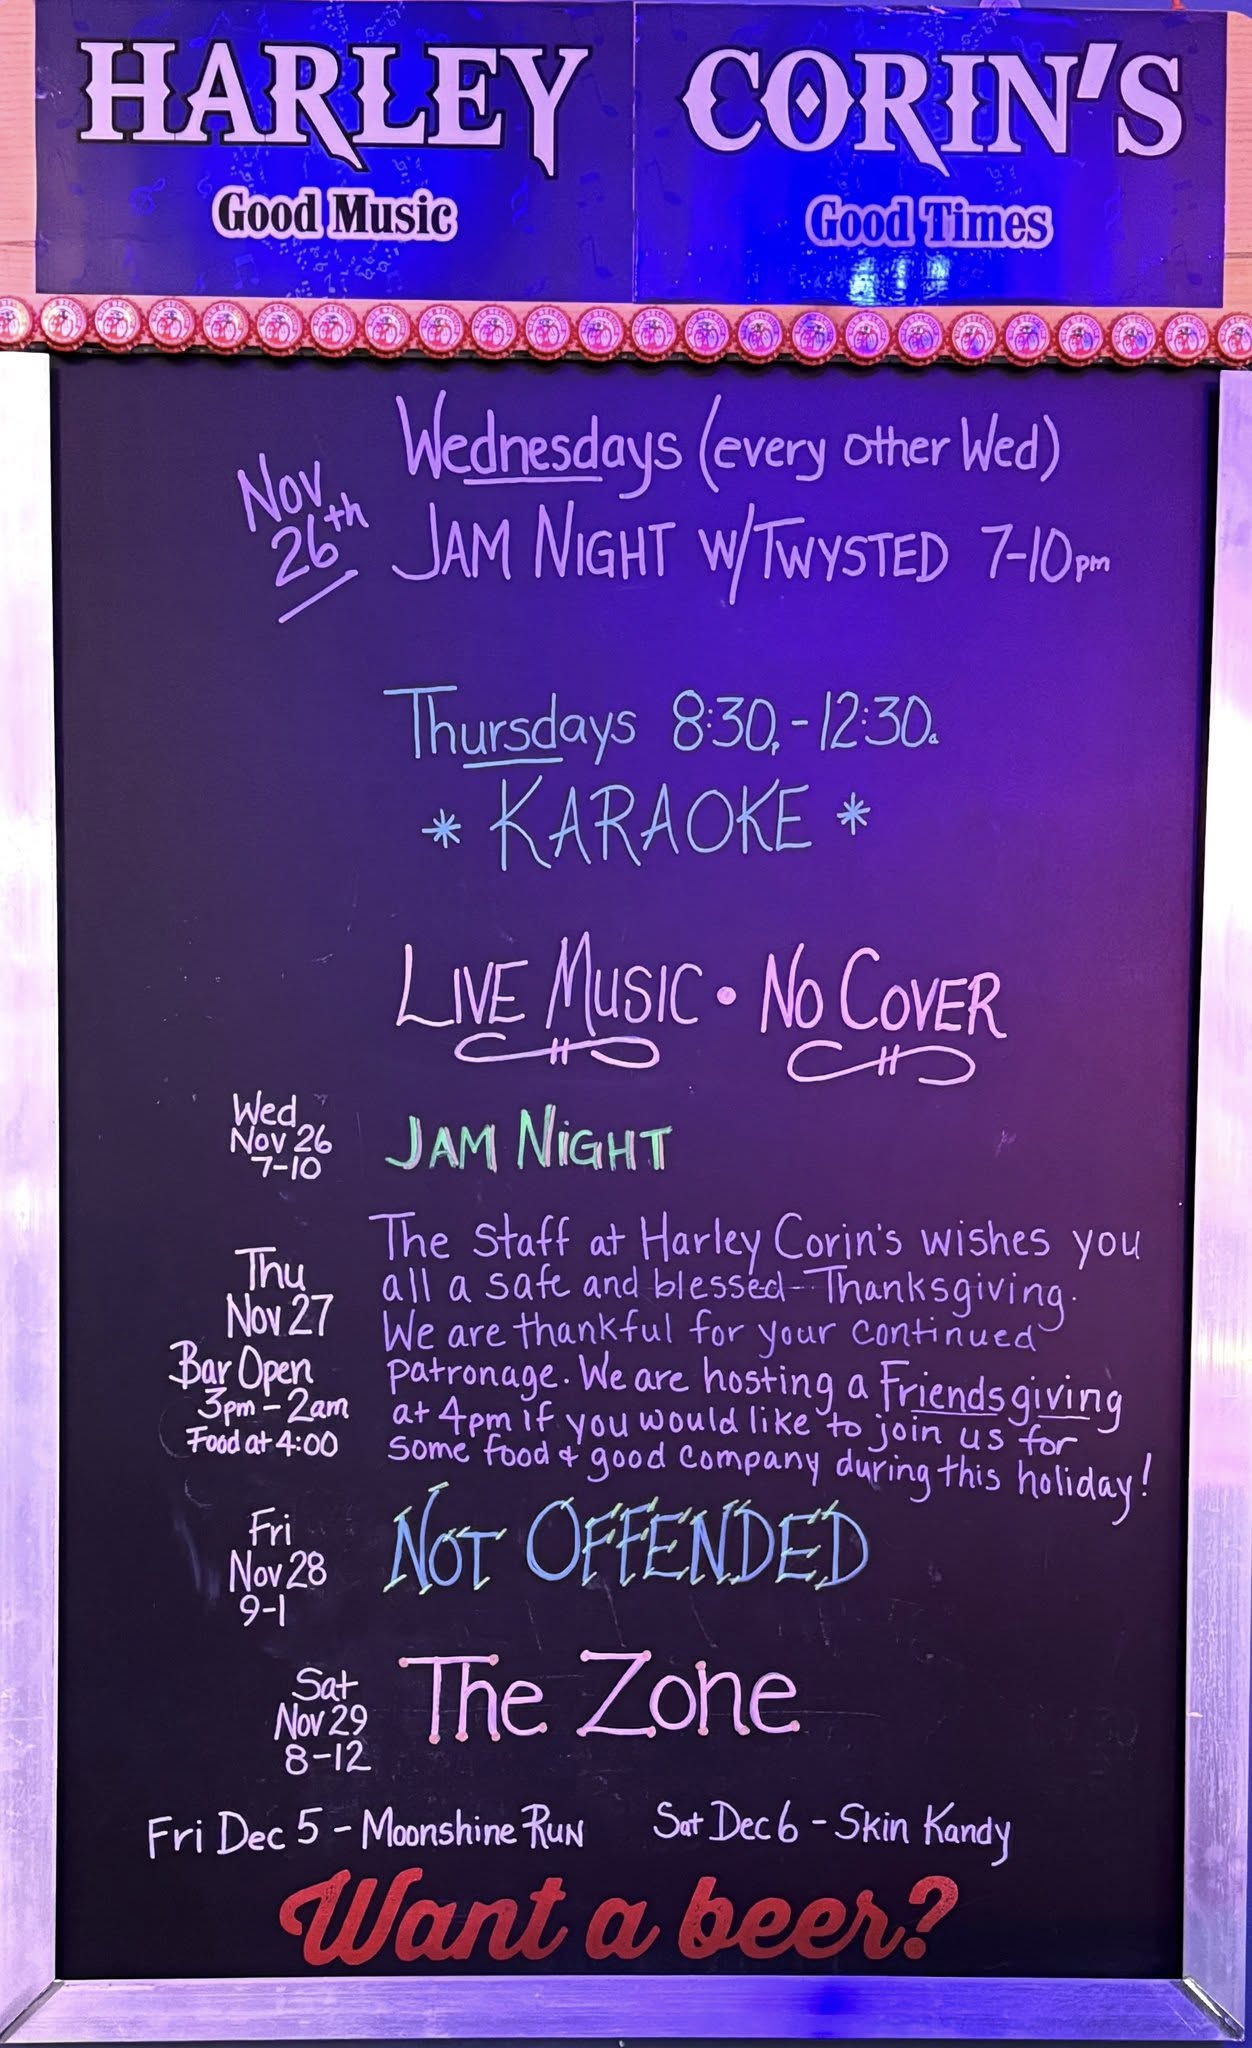 HARLEY CORIN'S
Good Music Good Times
Wednesdays (every other Wed)
Nov 26th JAM NIGHT W/TWYSTED 7-10pm
Thursdays 8:30p-12:30a
* KARAOKE *
LIVE MUSIC • NO COVER
Wed
Nov 26
7-10
JAM NIGHT
Thu
Nov 27
Bar Open
3pm - 2am
Food at 4:00
The Staff at Harley Corin's wishes you
all a safe and blessed Thanksgiving.
We are thankful for your continued
patronage. We are hosting a Friendsgiving
at 4pm if you would like to join us for
some food & good company during this holiday!
Fri
Nov 28
9-1
NOT OFFENDED
Sat
Nov 29
8-12
The Zone
Fri Dec 5 - Moonshine Run Sat Dec 6 - Skin Kandy
Want a beer?